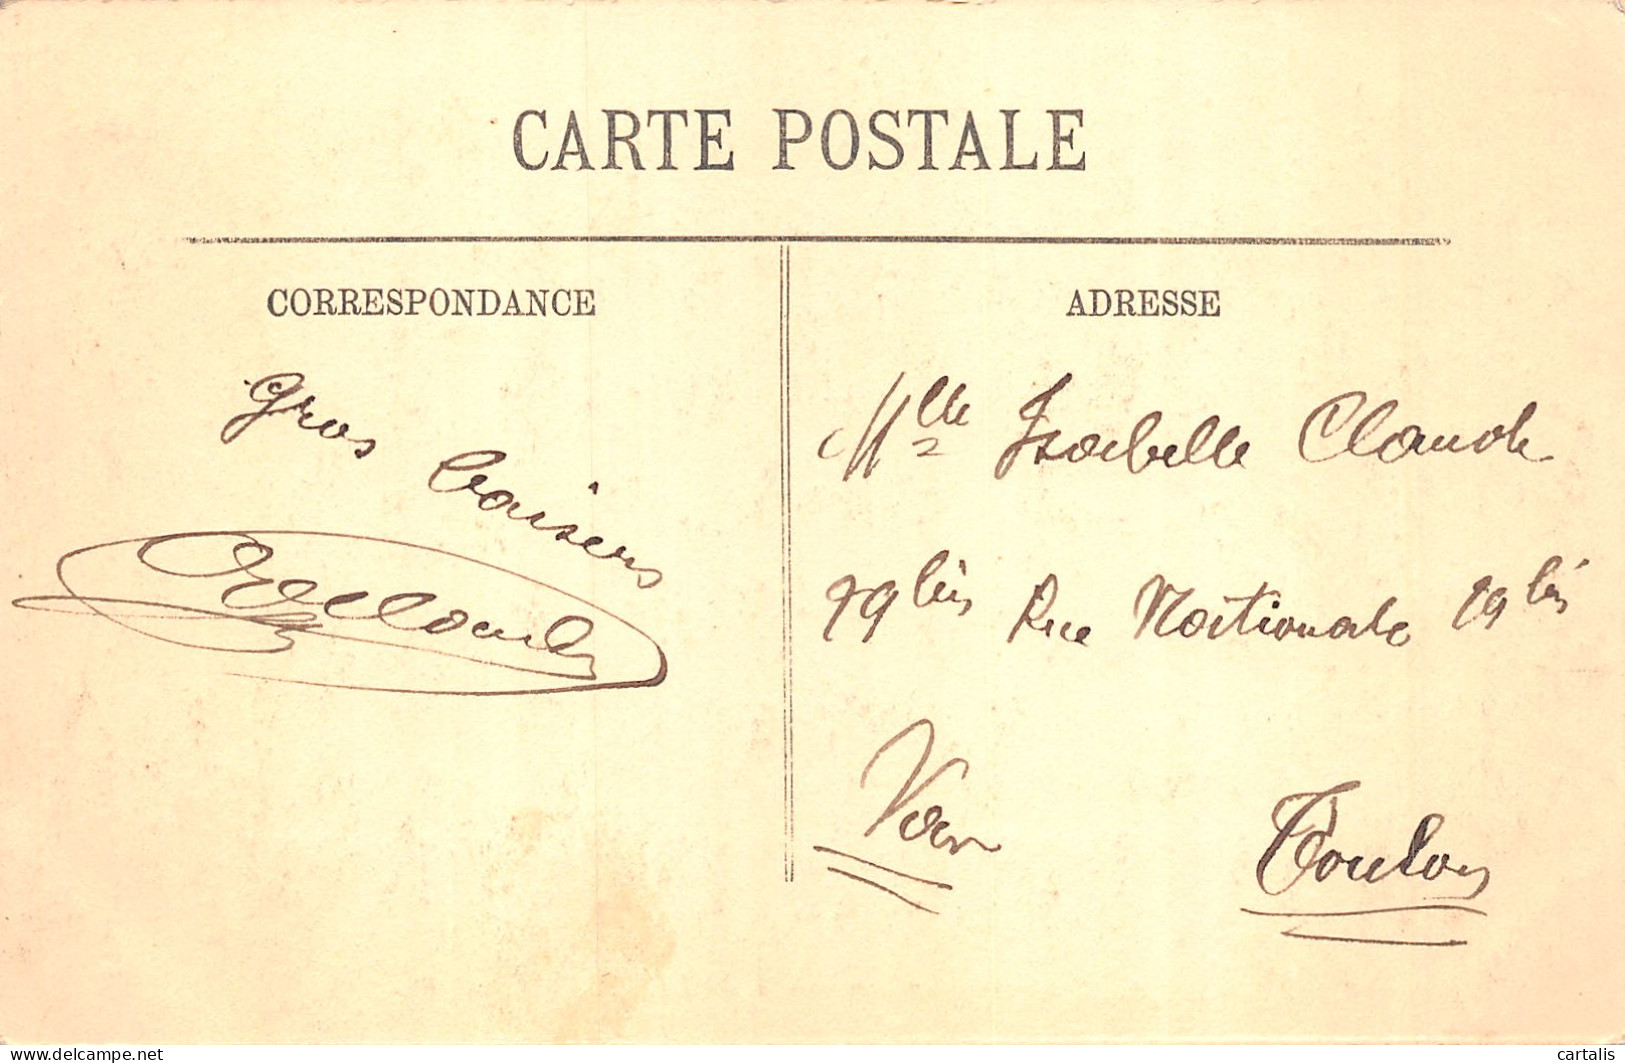 CARTE POSTALE
CORRESPONDANCE
Gros baisers
ADRESSE
Mlle Isabelle Claude
29 bis Rue Nationale 29 bis
Var
Toulon
www.delcampe.net
cartalis